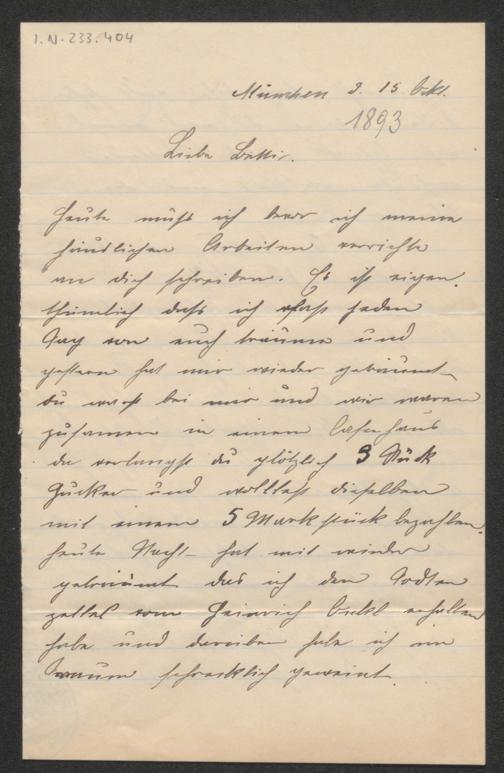 I.N. 233.404
München d. 15 Okt.
1893
Liebe Betti.
Heute muß ich bevor ich meine
häuslichen Arbeiten verrichte
an dich schreiben. Es ist eigen
thümlich daß ich fast jeden
Tag von euch träume und
gestern hat mir wieder geträumt
du warst bei mir und wir waren
zusamen in einem
da verlangst du plötzlich 3 Stück
Zucker und wolltest dieselben
mit einem 5 Markstück bezahlen.
heute Nacht hat mir wieder
geträumt das ich den Todten
zettel vom Heinrich erhalten
habe und darüber habe ich im
Traum schrecklich geweint.